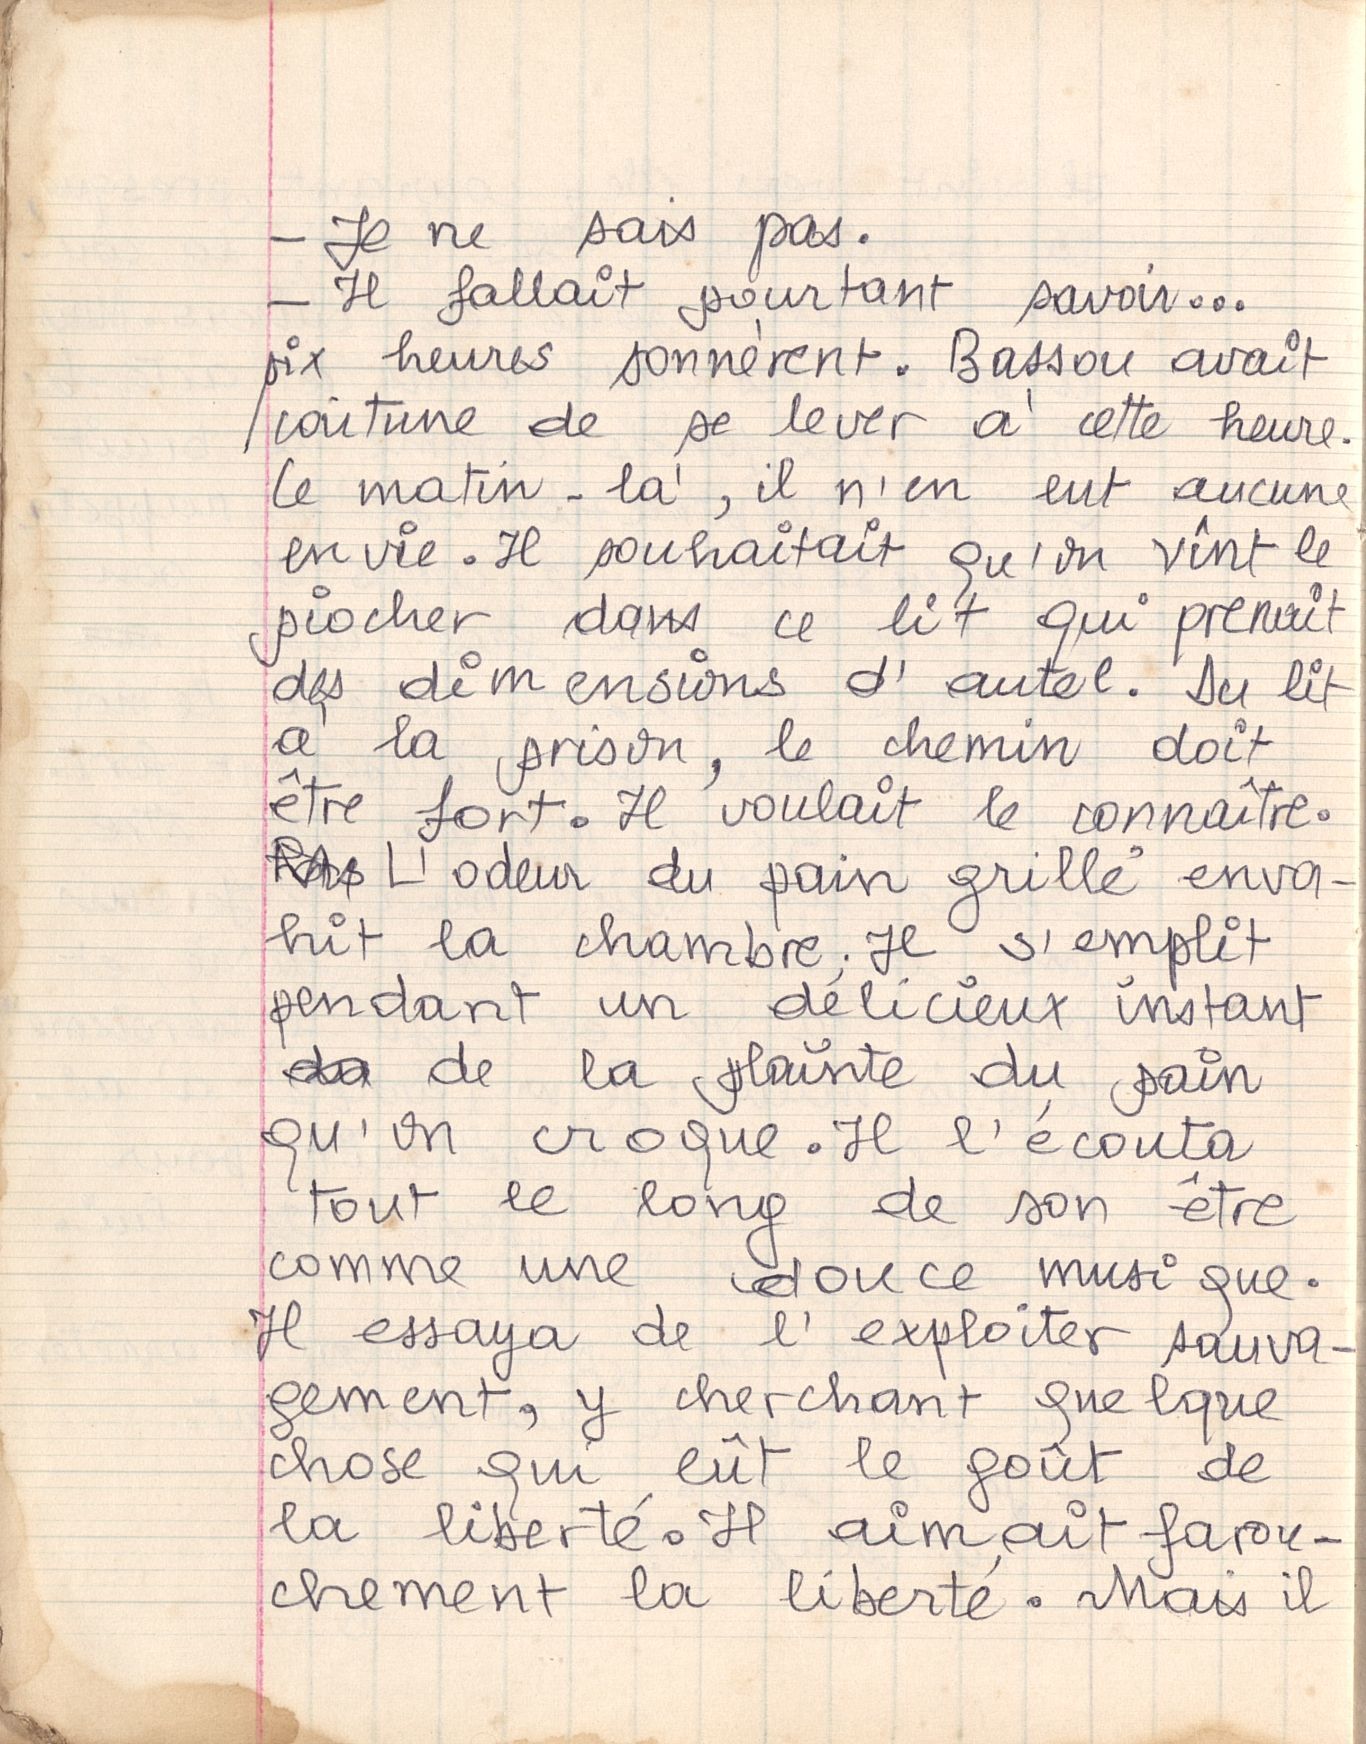 – Je ne sais pas.
– Il fallait pourtant savoir...
six heures sonnèrent. Bassou avait
coutume de se lever à cette heure.
Ce matin-là, il n'en eut aucune
envie. Il souhaitait qu'on vînt le
piocher dans ce lit qui prenait
des dimensions d'autel. Du lit
à la prison, le chemin doit
être fort. Il voulait le connaître.
L'odeur du pain grillé enva-
hit la chambre. Il s'emplit
pendant un délicieux instant
da de la plainte du pain
qu'on croque. Il l'écouta
tout le long de son être
comme une douce musique.
Il essaya de l'exploiter sauva-
gement, y cherchant quelque
chose qui eût le goût de
la liberté. Il aimait farou-
chement la liberté. Mais il